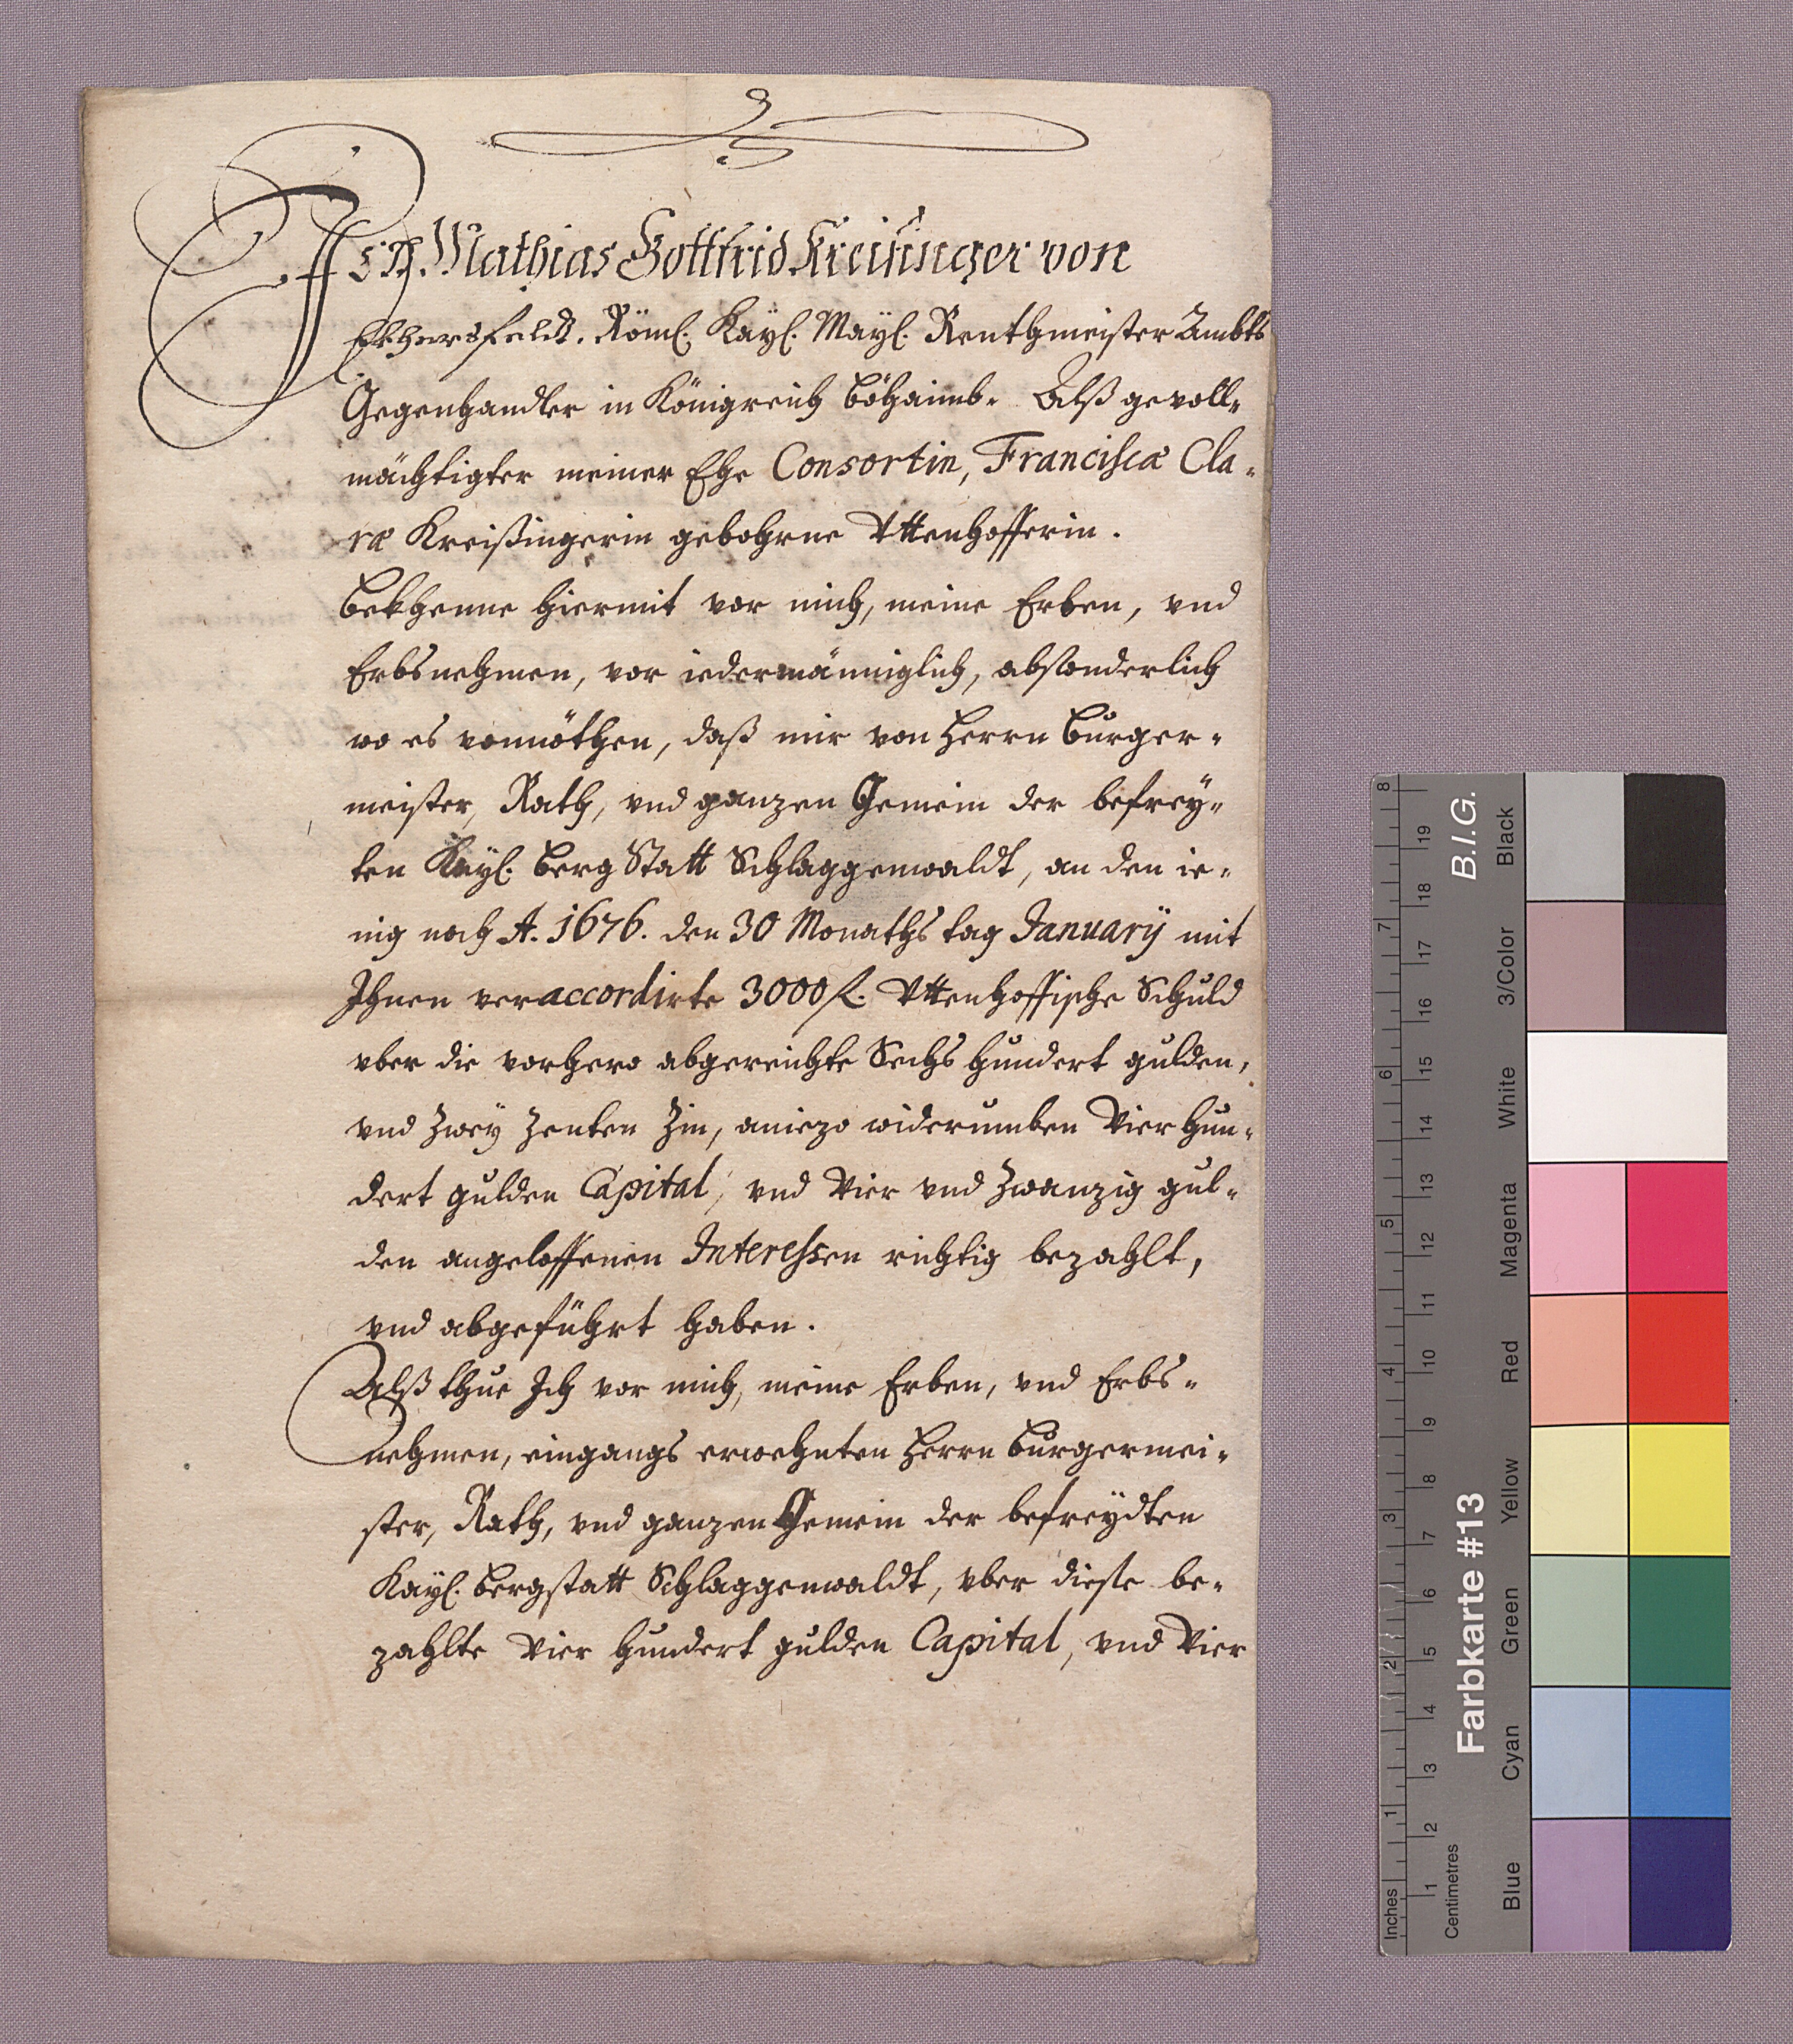 Ich Mathias Gottfrid Kreisinger von
Ekhersfeldt. Röml. Kayl. Mayl. Renthmeister Ambts
Gegenhandler in Königreich Böhaimb. Alß gevoll-
mächtigter meiner Ehe Consortin, Franciscæ Cla-
ræ Kreißingerin gebohrne Uttenhofferin.
Bekhenne hiermit vor mich, meine Erben, vnd
Erbsnehmen, vor iedermänniglich, absonderlich
wo es vonnöthen, daß mir von Herrn Burger-
meister, Rath, vnd ganzen Gemein der befrey-
ten Kayl. Berg Statt Schlaggenwaldt, an den ie-
nig noch A. 1676. den 30 Monaths tag January mit
Ihnen veraccordirte 3000 fl. Uttenhoffische Schuld
vber die vorhero abgereichte Sechs hundert gulden,
vnd Zwey Zenten Zin, aniezo widerumben Vier hun-
dert gulden Capital, vnd Vier vnd Zwanzig gul-
den angeloffenen Interessen richtig bezahlt,
vnd abgeführt haben.
Alß thue Ich vor mich, meine Erben, vnd Erbs-
nehmen, eingangs erwehnten Herrn Burgermei-
ster, Rath, vnd ganzen Gemein der befreydten
Kayl. Bergstatt Schlaggenwaldt, vber dieße be-
zahlte Vier hundert gulden Capital, vnd Vier
8 7 6 5 4 3 2 1 Inches
19 18 17 16 15 14 13 12 11 10 9 8 7 6 5 4 3 2 1 Centimetres
B.I.G.
Farbkarte #13
Black
3/Color
White
Magenta
Red
Yellow
Green
Cyan
Blue